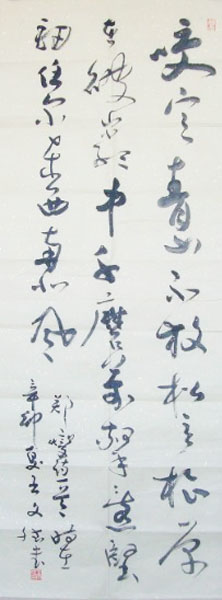 咬定青山不放松立根原
在破岩中千磨萬擊還堅
勁任尔東西南北風
鄭燮詩一首時在
辛卯夏